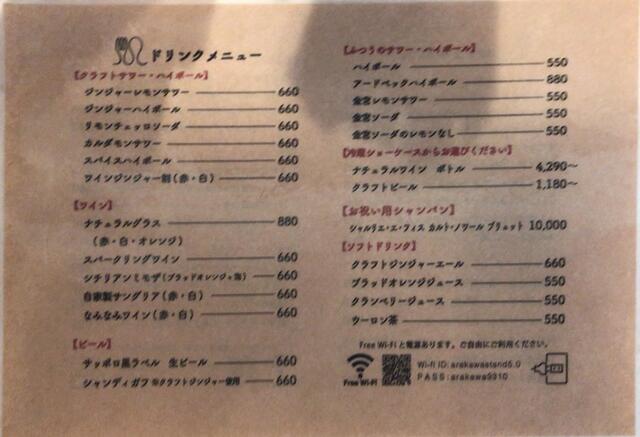 ドリンクメニュー
【クラフトサワー・ハイボール】
ジンジャーレモンサワー 660
ジンジャーハイボール 660
リモンチェッロソーダ 660
カルダモンサワー 660
スパイスハイボール 660
ワインジンジャー割(赤・白) 660
【ワイン】
ナチュラルグラス 880
(赤・白・オレンジ)
スパークリングワイン 660
シチリアンミモザ(ブラッドオレンジ+泡) 660
自家製サングリア(赤・白) 660
なみなみワイン(赤・白) 660
【ビール】
サッポロ黒ラベル 生ビール 660
シャンディガフ ※クラフトジンジャー使用 660
【ふつうのサワー・ハイボール】
ハイボール 550
アードベックハイボール 880
金宮レモンサワー 550
金宮ソーダ 550
金宮ソーダのレモンなし 550
【冷蔵ショーケースからお選びください】
ナチュラルワイン ボトル 4,290〜
クラフトビール 1,180〜
【お祝い用シャンパン】
シャルリエ・エ・フィス カルト・ノワール ブリュット 10,000
【ソフトドリンク】
クラフトジンジャーエール 660
ブラッドオレンジジュース 550
クランベリージュース 550
ウーロン茶 550
Free Wi-Fiと電源あります。ご自由にご利用ください。
Free Wi-Fi
Wi-fi ID: arakawastand5.0
PASS: arakawa9310